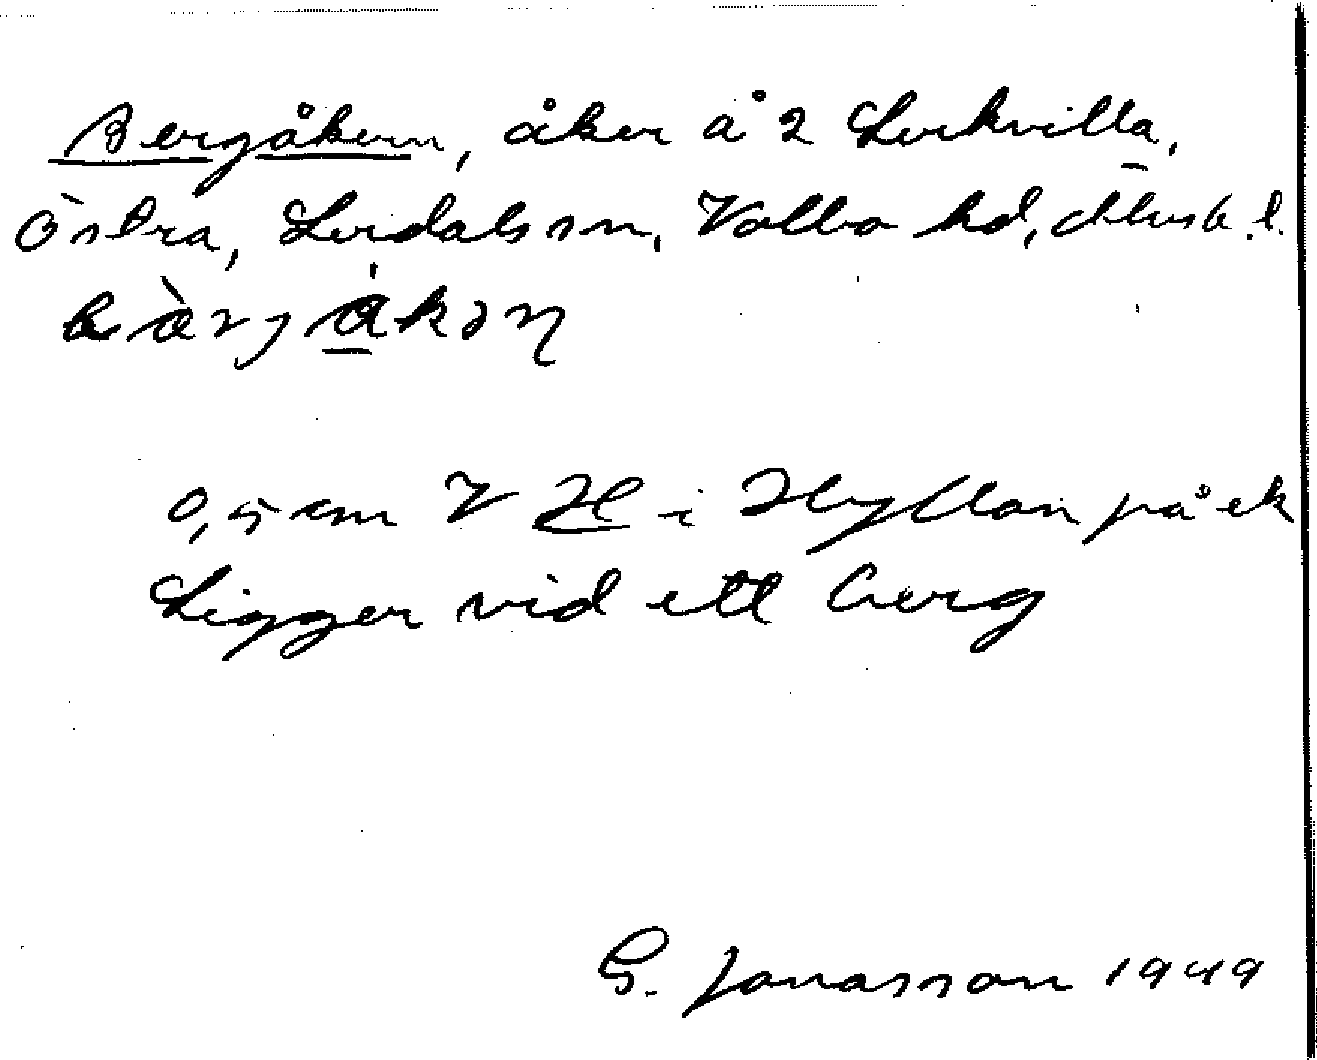 Bergåkern, åker å 2 Lerkvilla,
Östra, Lerdals sn, Valbo hd, Älvsb. l.
bærjakən
0,5 cm V H i Hyllan på ek
Ligger vid ett berg
G. Jonasson 1949